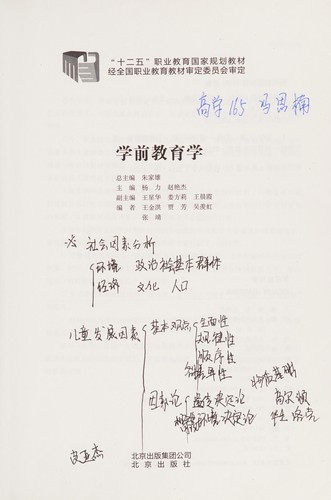 “十二五”职业教育国家规划教材
经全国职业教育教材审定委员会审定
高学165
学前教育学
总主编 朱家雄
主编 杨力 赵艳杰
副主编 王星华 娄方莉 王晓霞
编者 王金洪 贾芳 吴羡虹
张靖
社会因素分析
环境 政治 社会基本群体
经济 文化 人口
儿童发展因素 基本观点 全面性
规律性
顺序性
因素论 遗传决定论 物质基础
环境决定论
北京出版集团公司
北京出版社